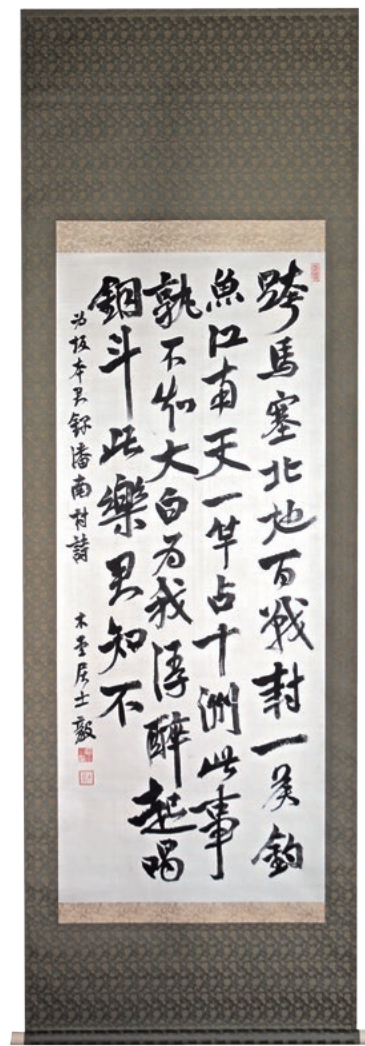 跨馬塞北地百戰封一侯釣
魚江南天一竿占十洲此事
孰不知大白为我浮醉起喝
銅斗此樂君知不
为坂本君録潘南村詩
木堂居士毅